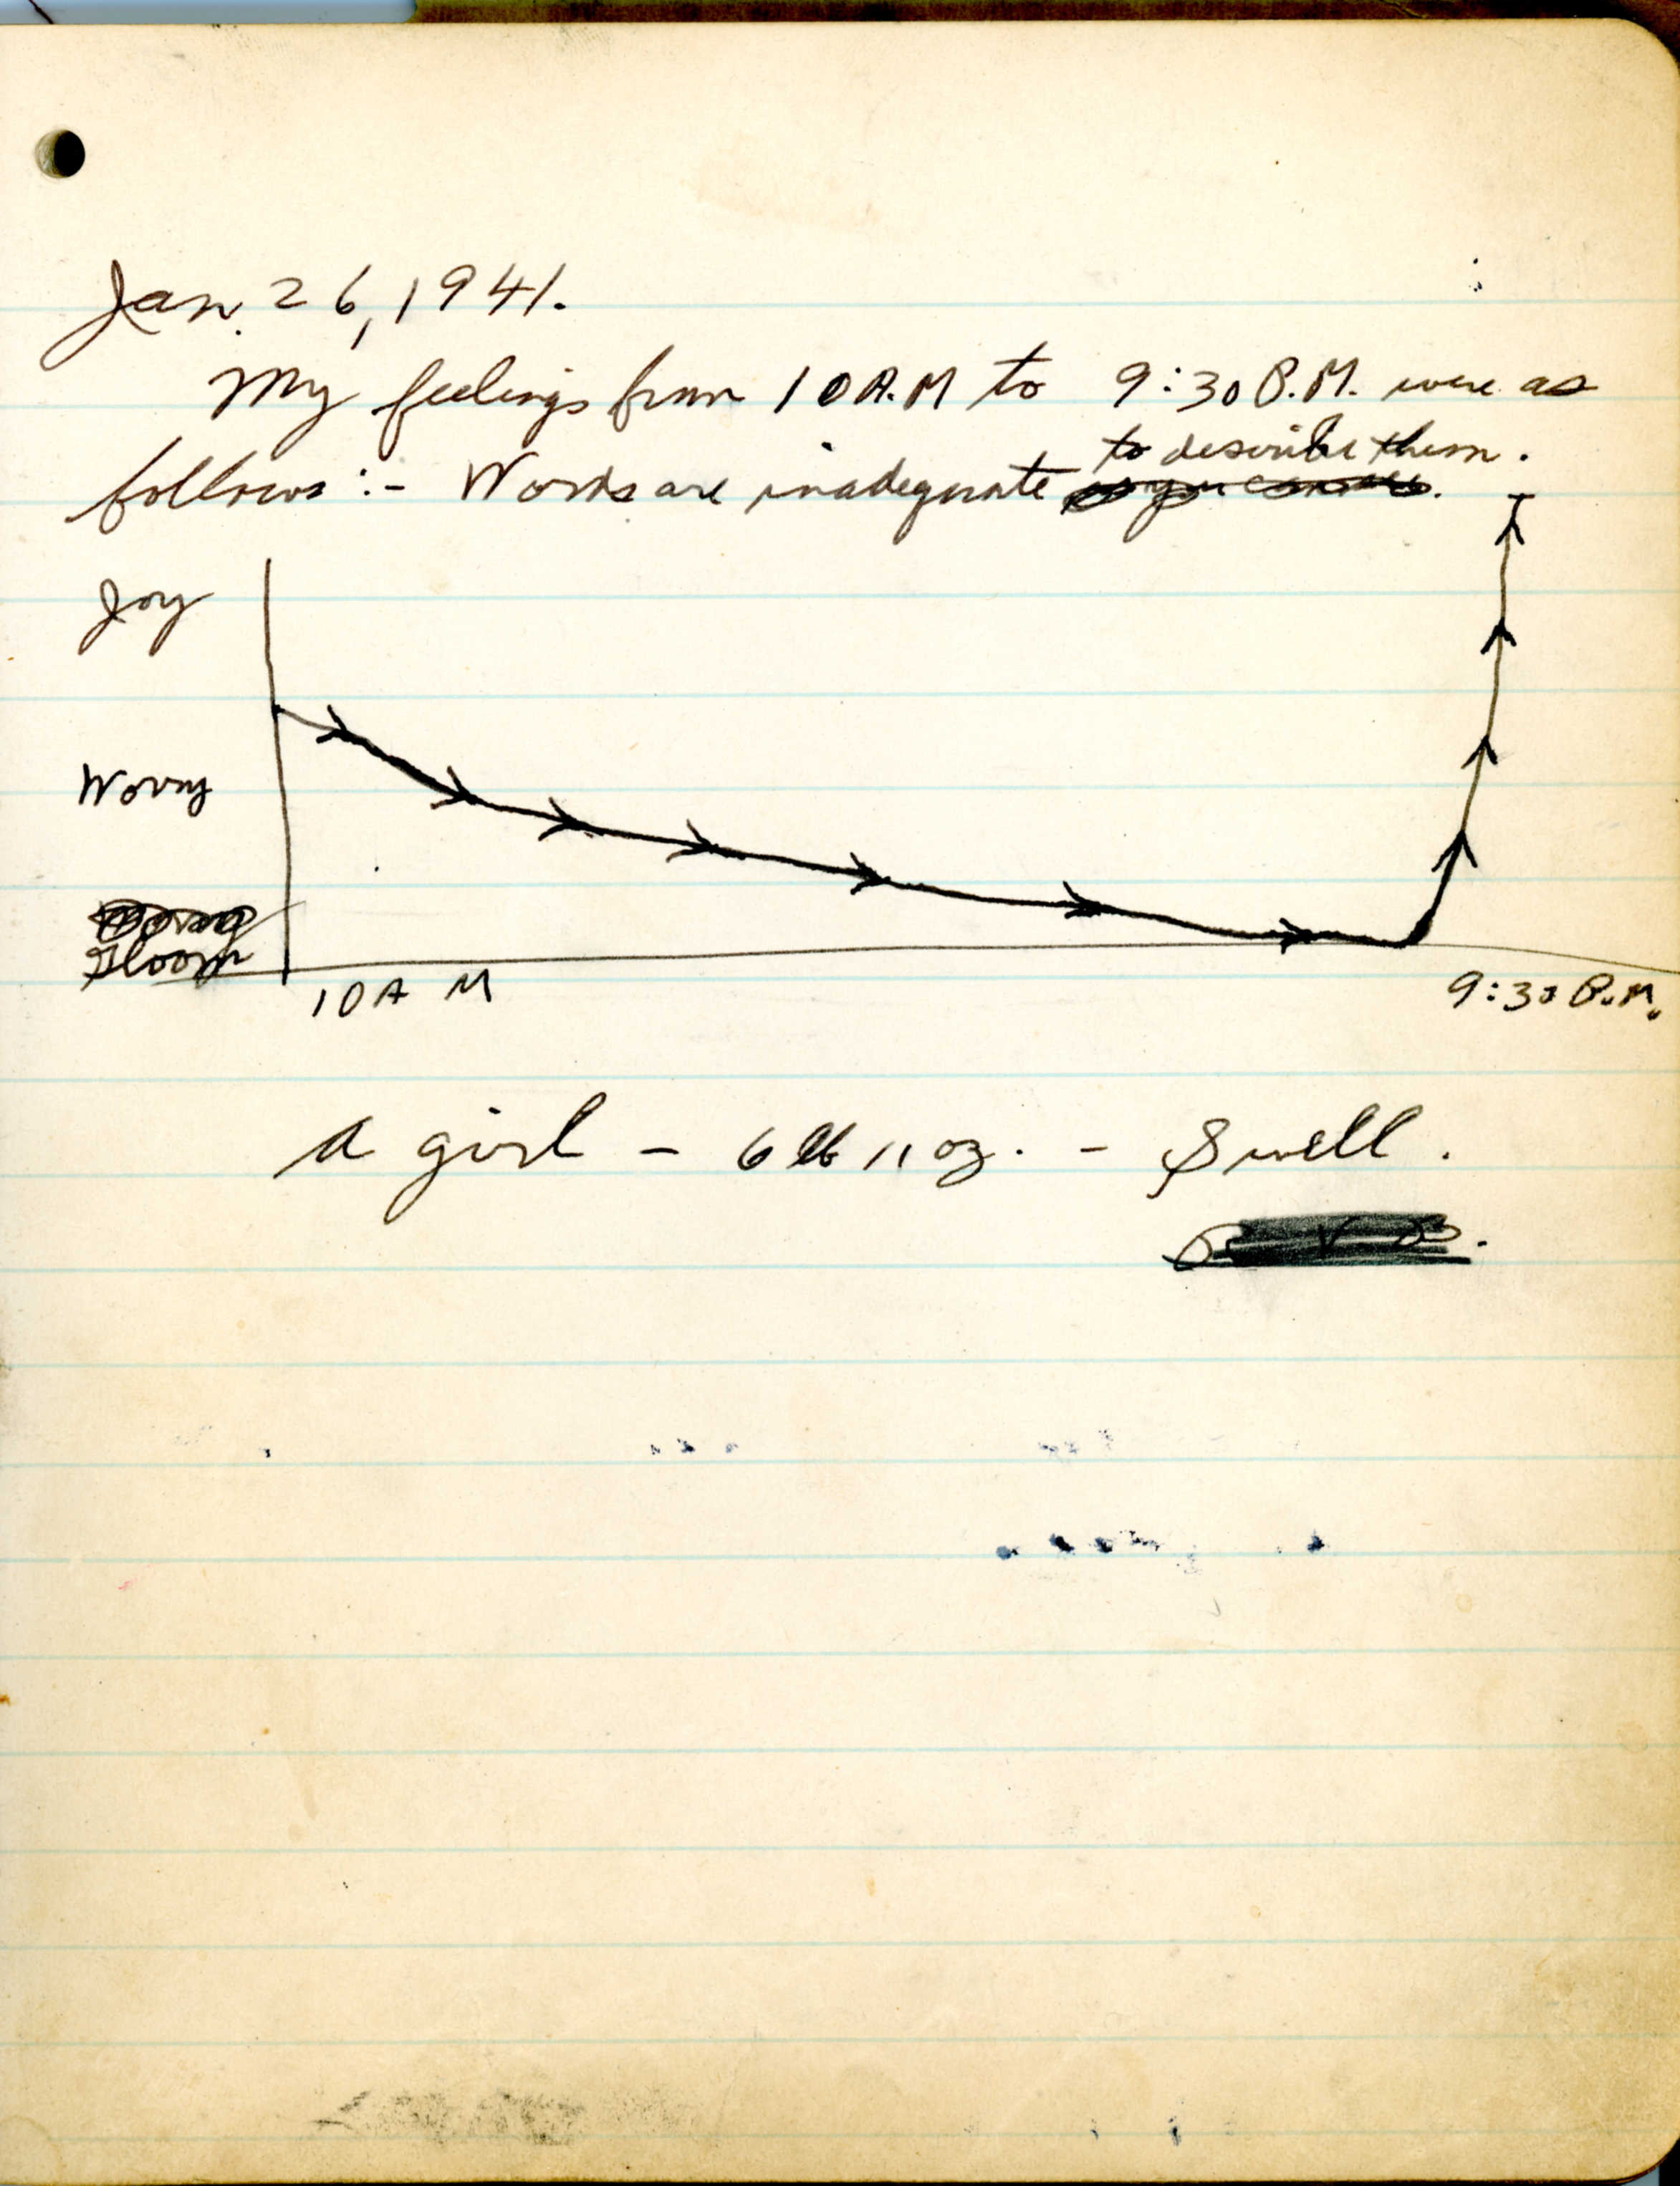 Jan. 26, 1941.
My feelings from 10 A.M to 9:30 P.M. were as
to describe them.
follows :- Words are inadequate
Joy
Worry
Gloom
10 A M
9:30 P.M.
A girl - 6 lb 11 oz. - Swell.